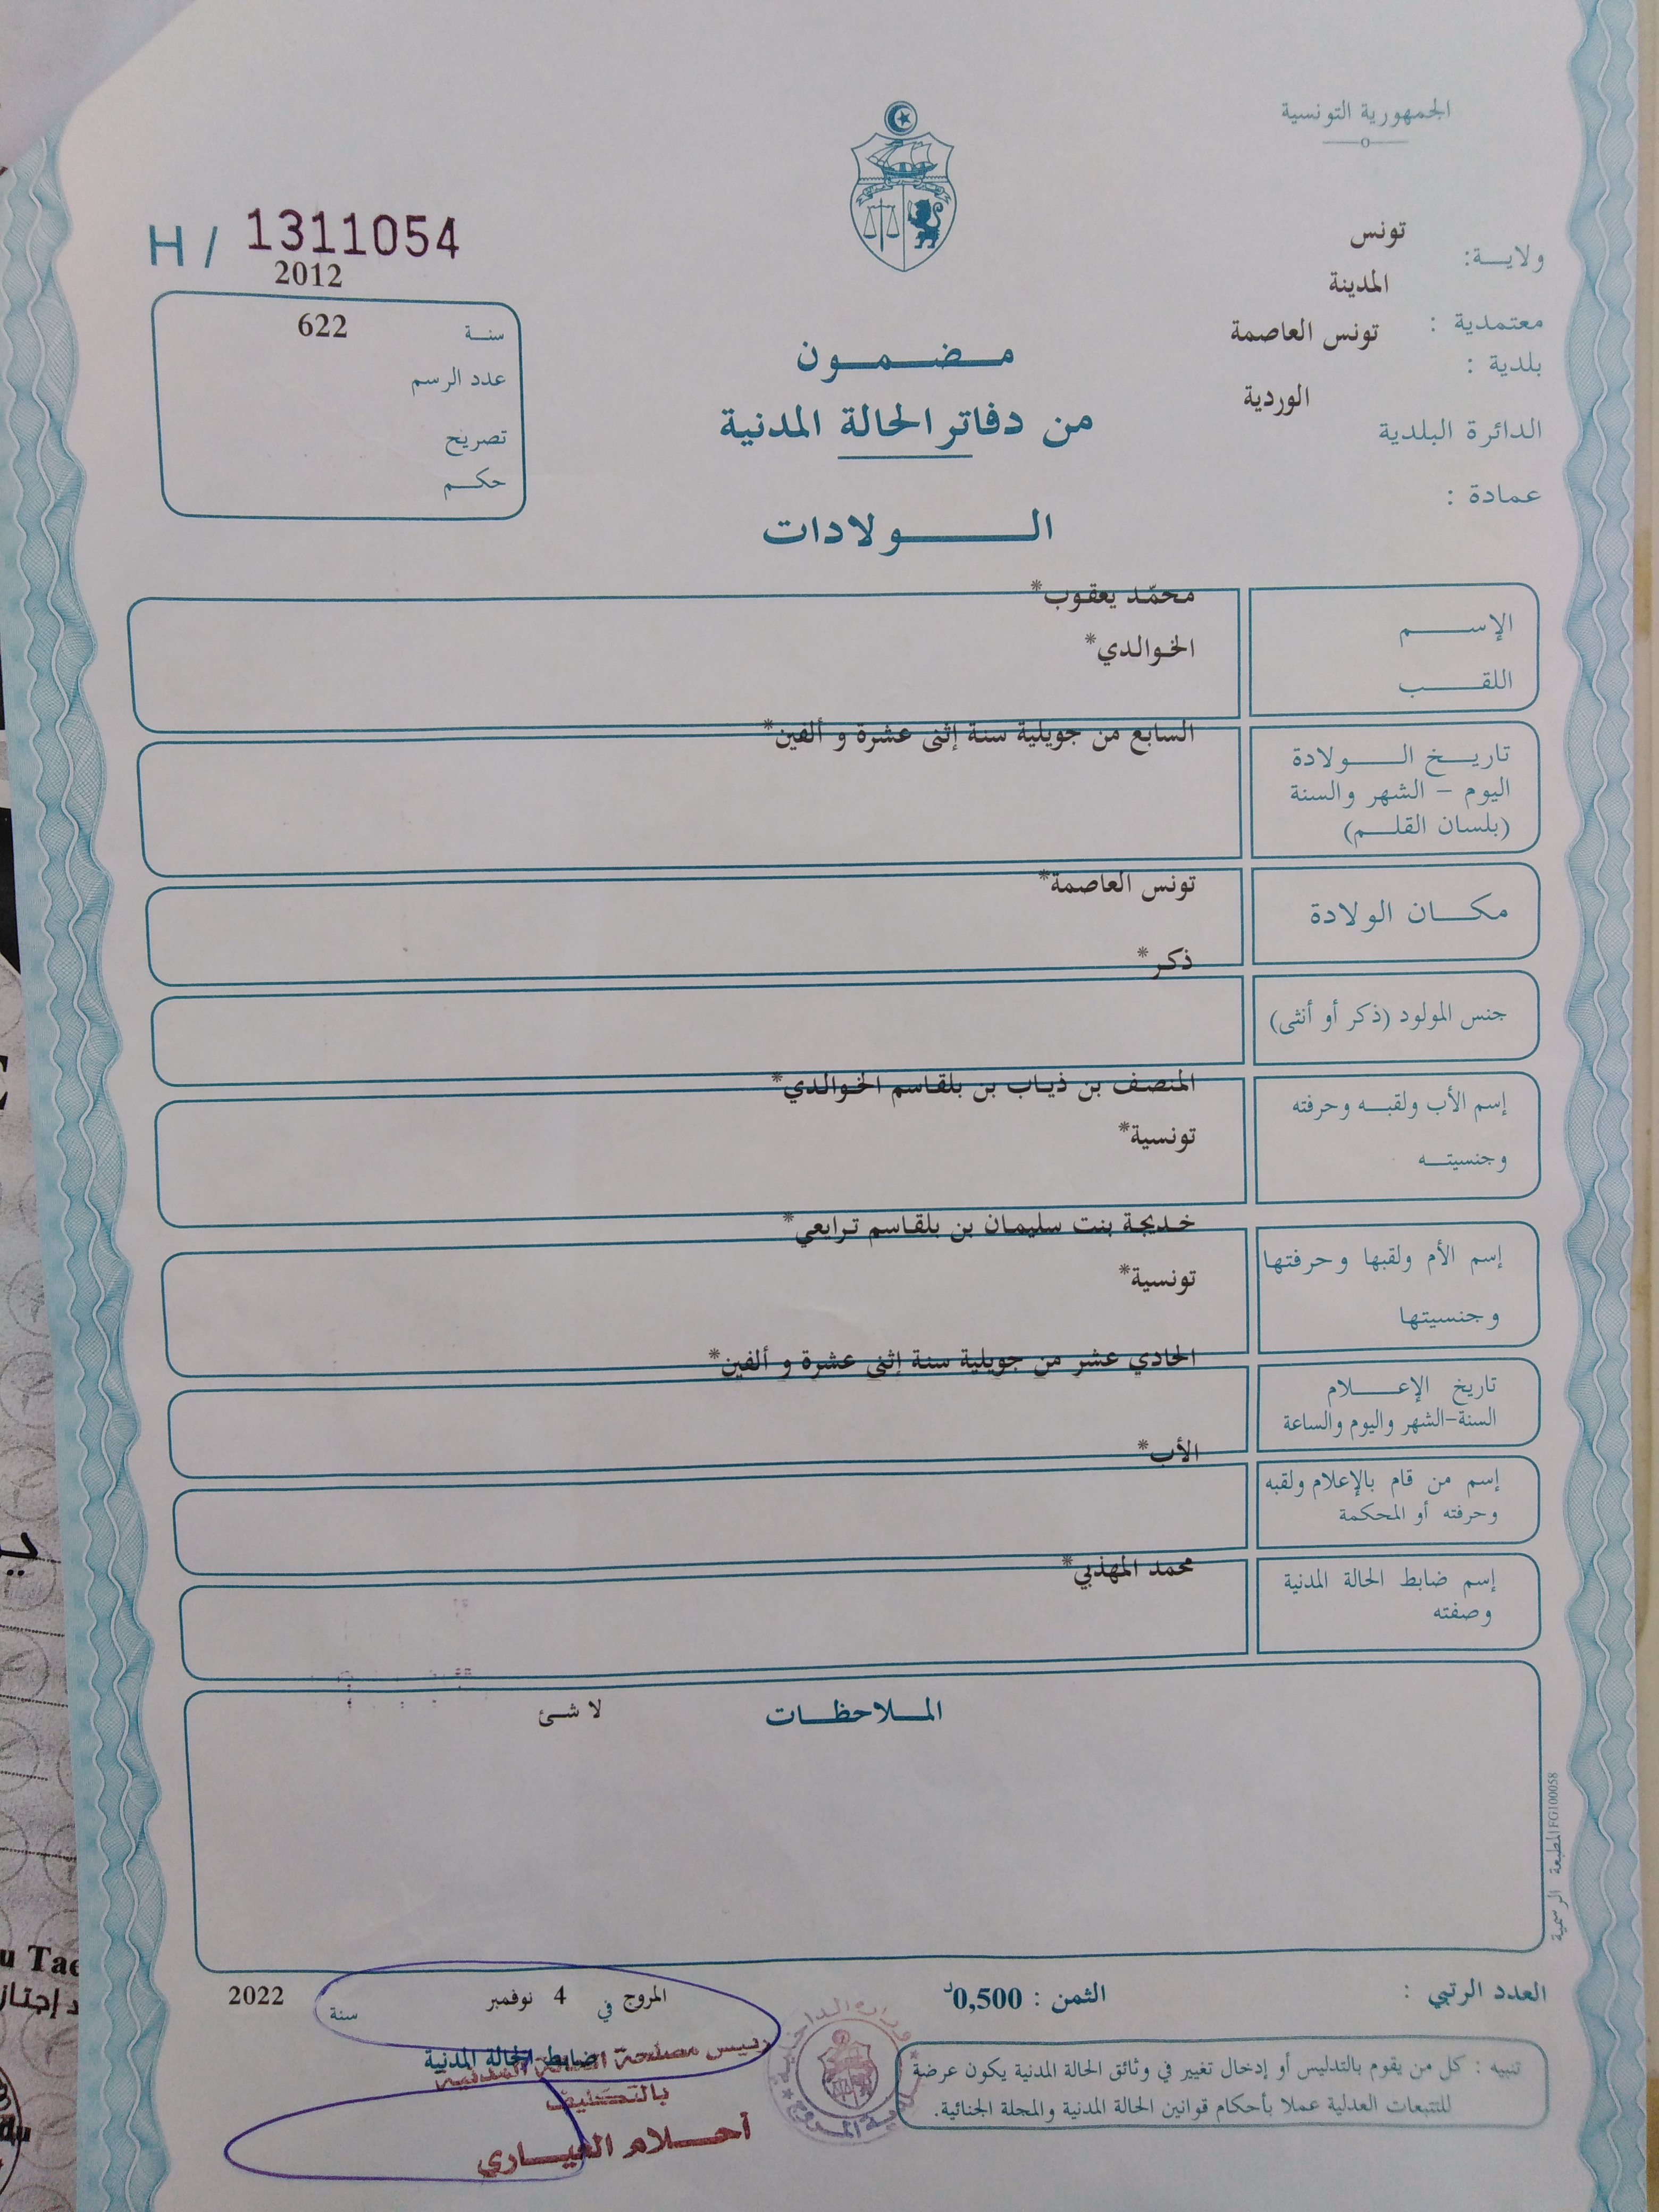 الجمهورية التونسية
H / 1311054
ولايـــة: تونس
المدينة
معتمدية :
بلدية : تونس العاصمة
الدائرة البلدية الوردية
عمادة :
2012
سنــة 622
عدد الرسم
تصريح
حكــم
مـــضـــمـــون
من دفاتر الحالة المدنية
الـــــــولادات
الإســـــــم محمّد يعقوب*
اللقـــــــب الخوالدي*
تاريـــخ الـــــولادة السابع من جويلية سنة إثنى عشرة و ألفين*
اليوم – الشهر والسنة
(بلسان القلـــم)
مكـــان الولادة تونس العاصمة*
ذكر*
جنس المولود (ذكر أو أنثى)
إسم الأب ولقبـــه وحرفته المنصف بن ذياب بن بلقاسم الخوالدي*
وجنسيتـــه تونسية*
إسم الأم ولقبها وحرفتها خديجة بنت سليمان بن بلقاسم ترايعي*
وجنسيتها تونسية*
تاريخ الإعــــــلام الحادي عشر من جويلية سنة إثنى عشرة و ألفين*
السنة-الشهر واليوم والساعة
الأب*
إسم من قام بالإعلام ولقبه
وحرفته أو المحكمة
إسم ضابط الحالة المدنية محمد المهذبي*
وصفته
المـــلاحظـــات لا شئ
المطبعة الرسمية FG100058
العدد الرتبي : الثمن : 0,500د
المروج في 4 نوفمبر سنة 2022
ضابط الحالة المدنية
رئيس مصلحة الحالة المدنية
بالتكليف
أحـــلام العيـــاري
وزارة الداخلية
بلدية المروج
تنبيه : كل من يقوم بالتدليس أو إدخال تغيير في وثائق الحالة المدنية يكون عرضة
للتتبعات العدلية عملا بأحكام قوانين الحالة المدنية والمجلة الجنائية.
u Tae